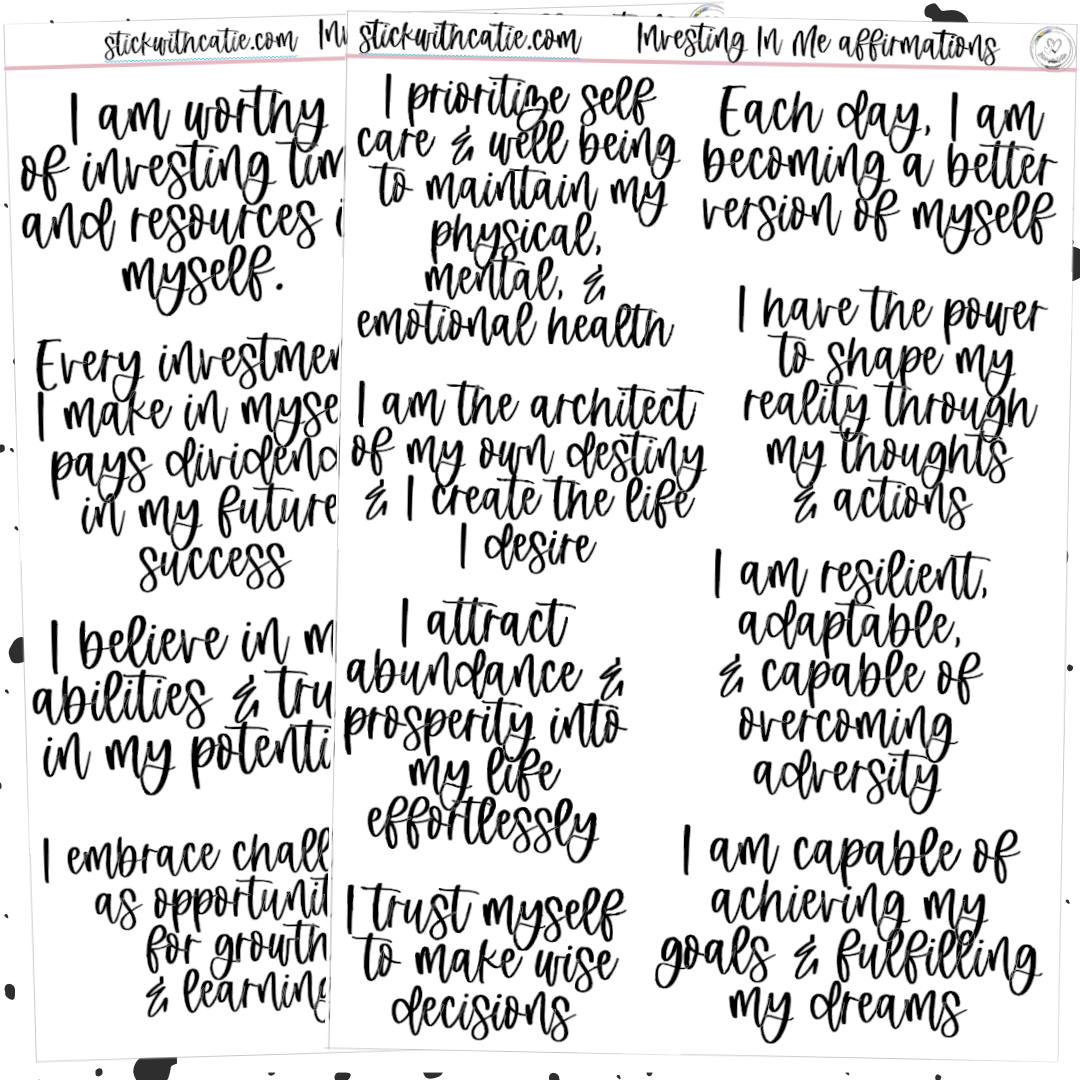 stickwithcatie.com
I am worthy
of investing
and resources
myself.
Every
I make in
pays
in my future
success
I believe in
abilities &
in my
I embrace
as
for growth
& learning
stickwithcatie.com Investing In Me affirmations
I prioritize self
care & well being
to maintain my
physical,
mental, &
emotional health
I am the architect
of my own destiny
& I create the life
I desire
I attract
abundance &
prosperity into
my life
effortlessly
I trust myself
to make wise
decisions
Each day, I am
becoming a better
version of myself
I have the power
to shape my
reality through
my thoughts
& actions
I am resilient,
adaptable,
& capable of
overcoming
adversity
I am capable of
achieving my
goals & fulfilling
my dreams